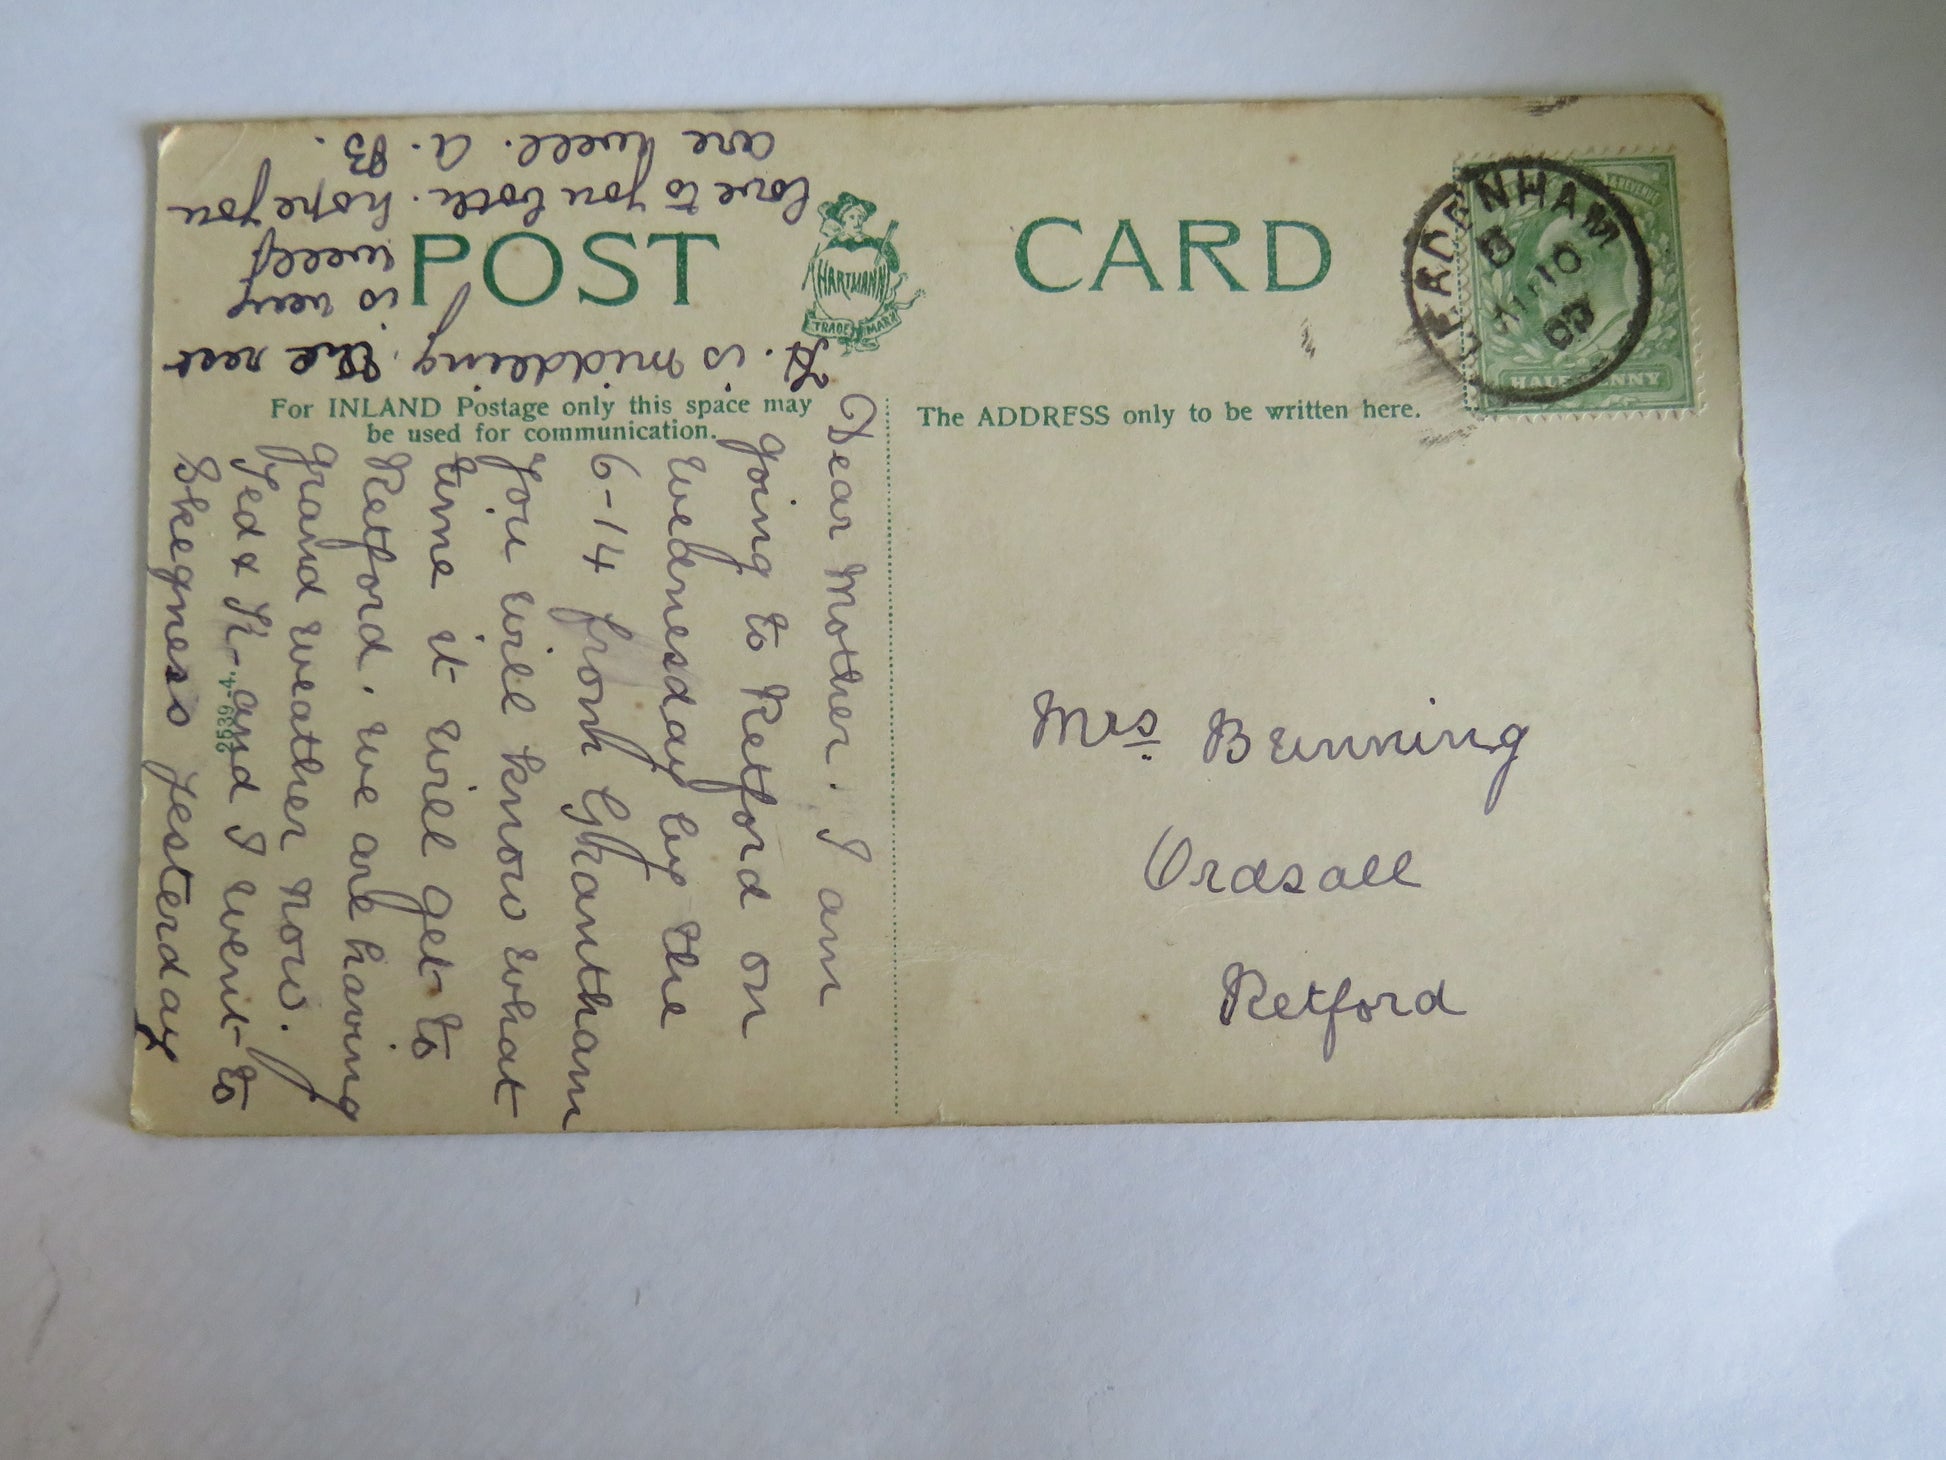 POST CARD
HARTMANN
TRADE MARK
For INLAND Postage only this space may
be used for communication.
The ADDRESS only to be written here.
LEADENHAM
HALFPENNY
Mrs Bunning
Ordsall
Retford
Dear Mother. I am
going to Retford on
Wednesday by the
6-14 from Grantham
You will know what
time it will get to
Retford. We are having
grand weather now.
Ted & H- and I went to
Skegness yesterday
H. is middling. the rest
is very
well
love to you both. hope you
are well. a. B.